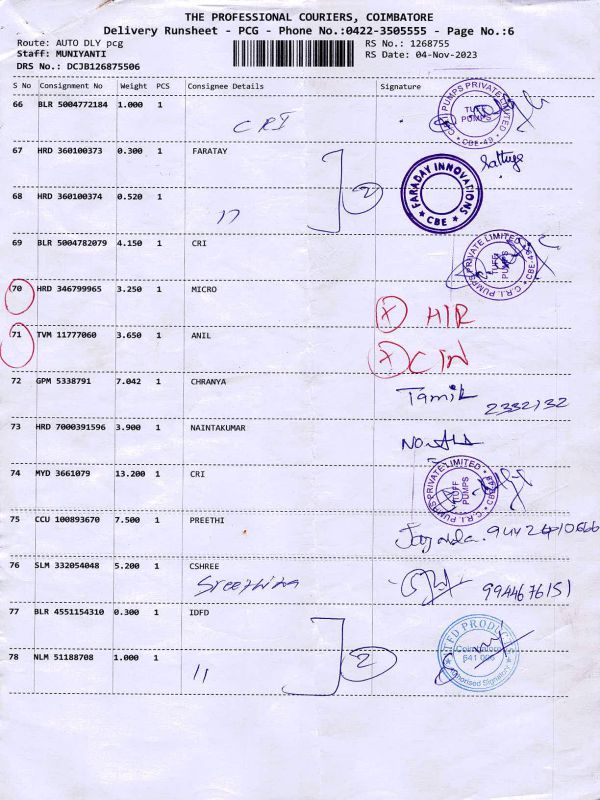 THE PROFESSIONAL COURIERS, COIMBATORE
Delivery Runsheet - PCG - Phone No.:0422-3505555 - Page No.:6
Route: AUTO DLY pcg RS No.: 1268755
Staff: MUNIYANTI RS Date: 04-Nov-2023
DRS No.: DCJB126875506
S No Consignment No Weight PCS Consignee Details Signature
66 BLR 5004772184 1.000 1
CRI
C.R.I. PUMPS PRIVATE LIMITED TUFF PUMPS CBE-49
67 HRD 360100373 0.300 1 FARATAY
FARADAY INNOVATIONS CBE
2
68 HRD 360100374 0.520 1
11
69 BLR 5004782079 4.150 1 CRI
C.R.I. PUMPS PRIVATE LIMITED TUFF PUMPS CBE-49
70 HRD 346799965 3.250 1 MICRO
X HIR
71 TVM 11777060 3.650 1 ANIL
X CIN
72 GPM 5338791 7.042 1 CHRANYA
Tamil 2332132
73 HRD 7000391596 3.900 1 NAINTAKUMAR
74 MYD 3661079 13.200 1 CRI
C.R.I. PUMPS PRIVATE LIMITED TUFF PUMPS CBE-49
75 CCU 100893670 7.500 1 PREETHI
76 SLM 332054048 5.200 1 CSHREE
9944676151
77 BLR 4551154310 0.300 1 IDFD
2
78 NLM 51188708 1.000 1
11
Coimbatore 641 006 Authorised Signatory